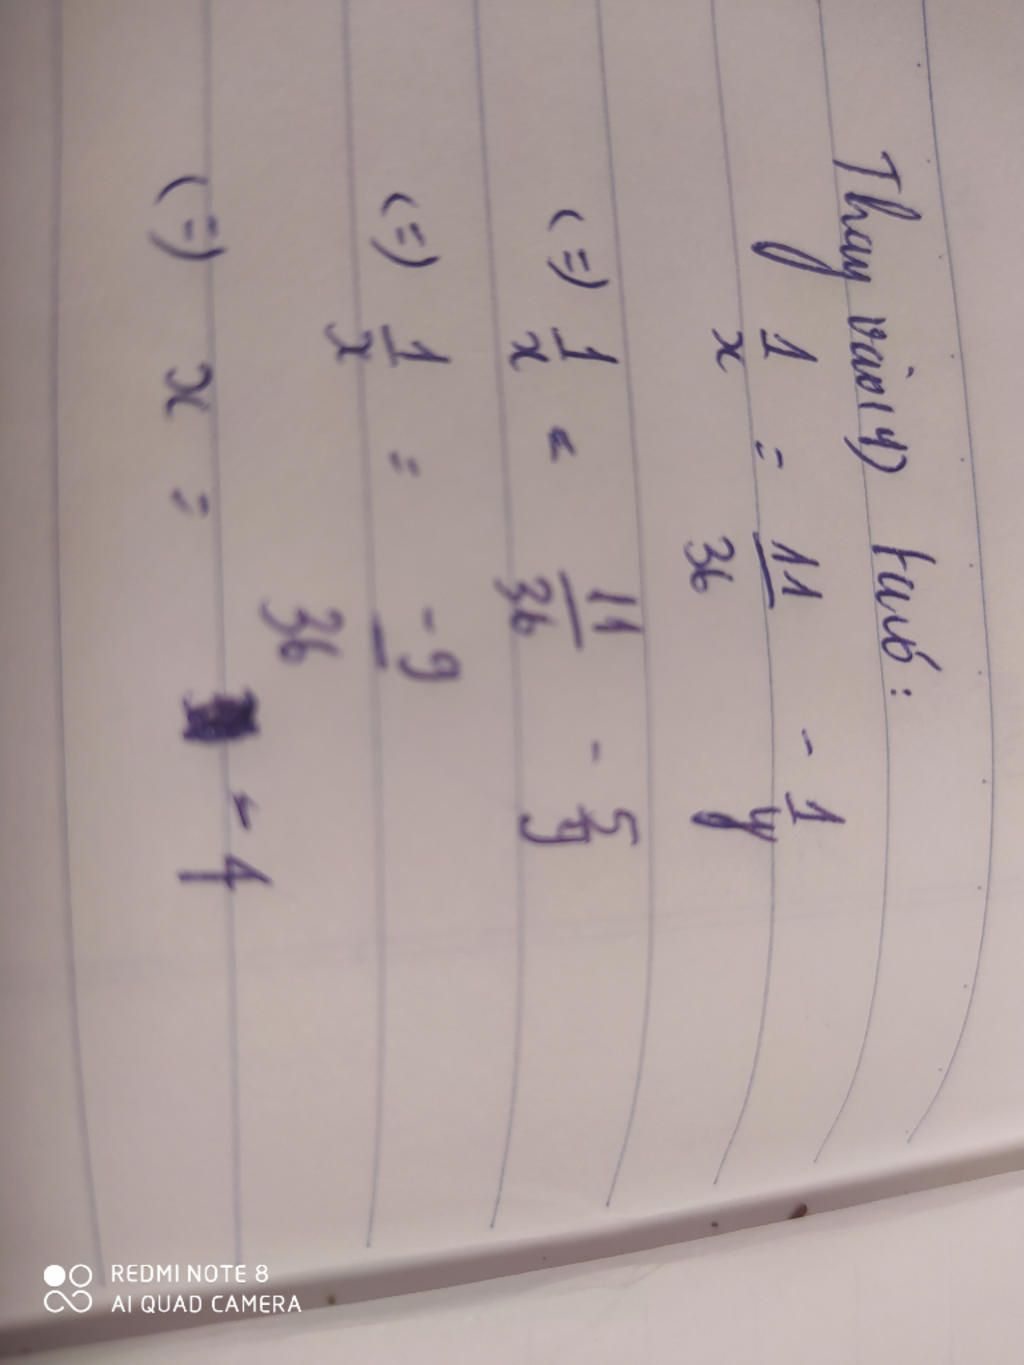 Thay vào (4) ta có:
1/x = 11/36 - 1/y
(=) 1/x = 11/36 - 5/9
(=) 1/x = -9/36
(=) x = - 4
REDMI NOTE 8
AI QUAD CAMERA